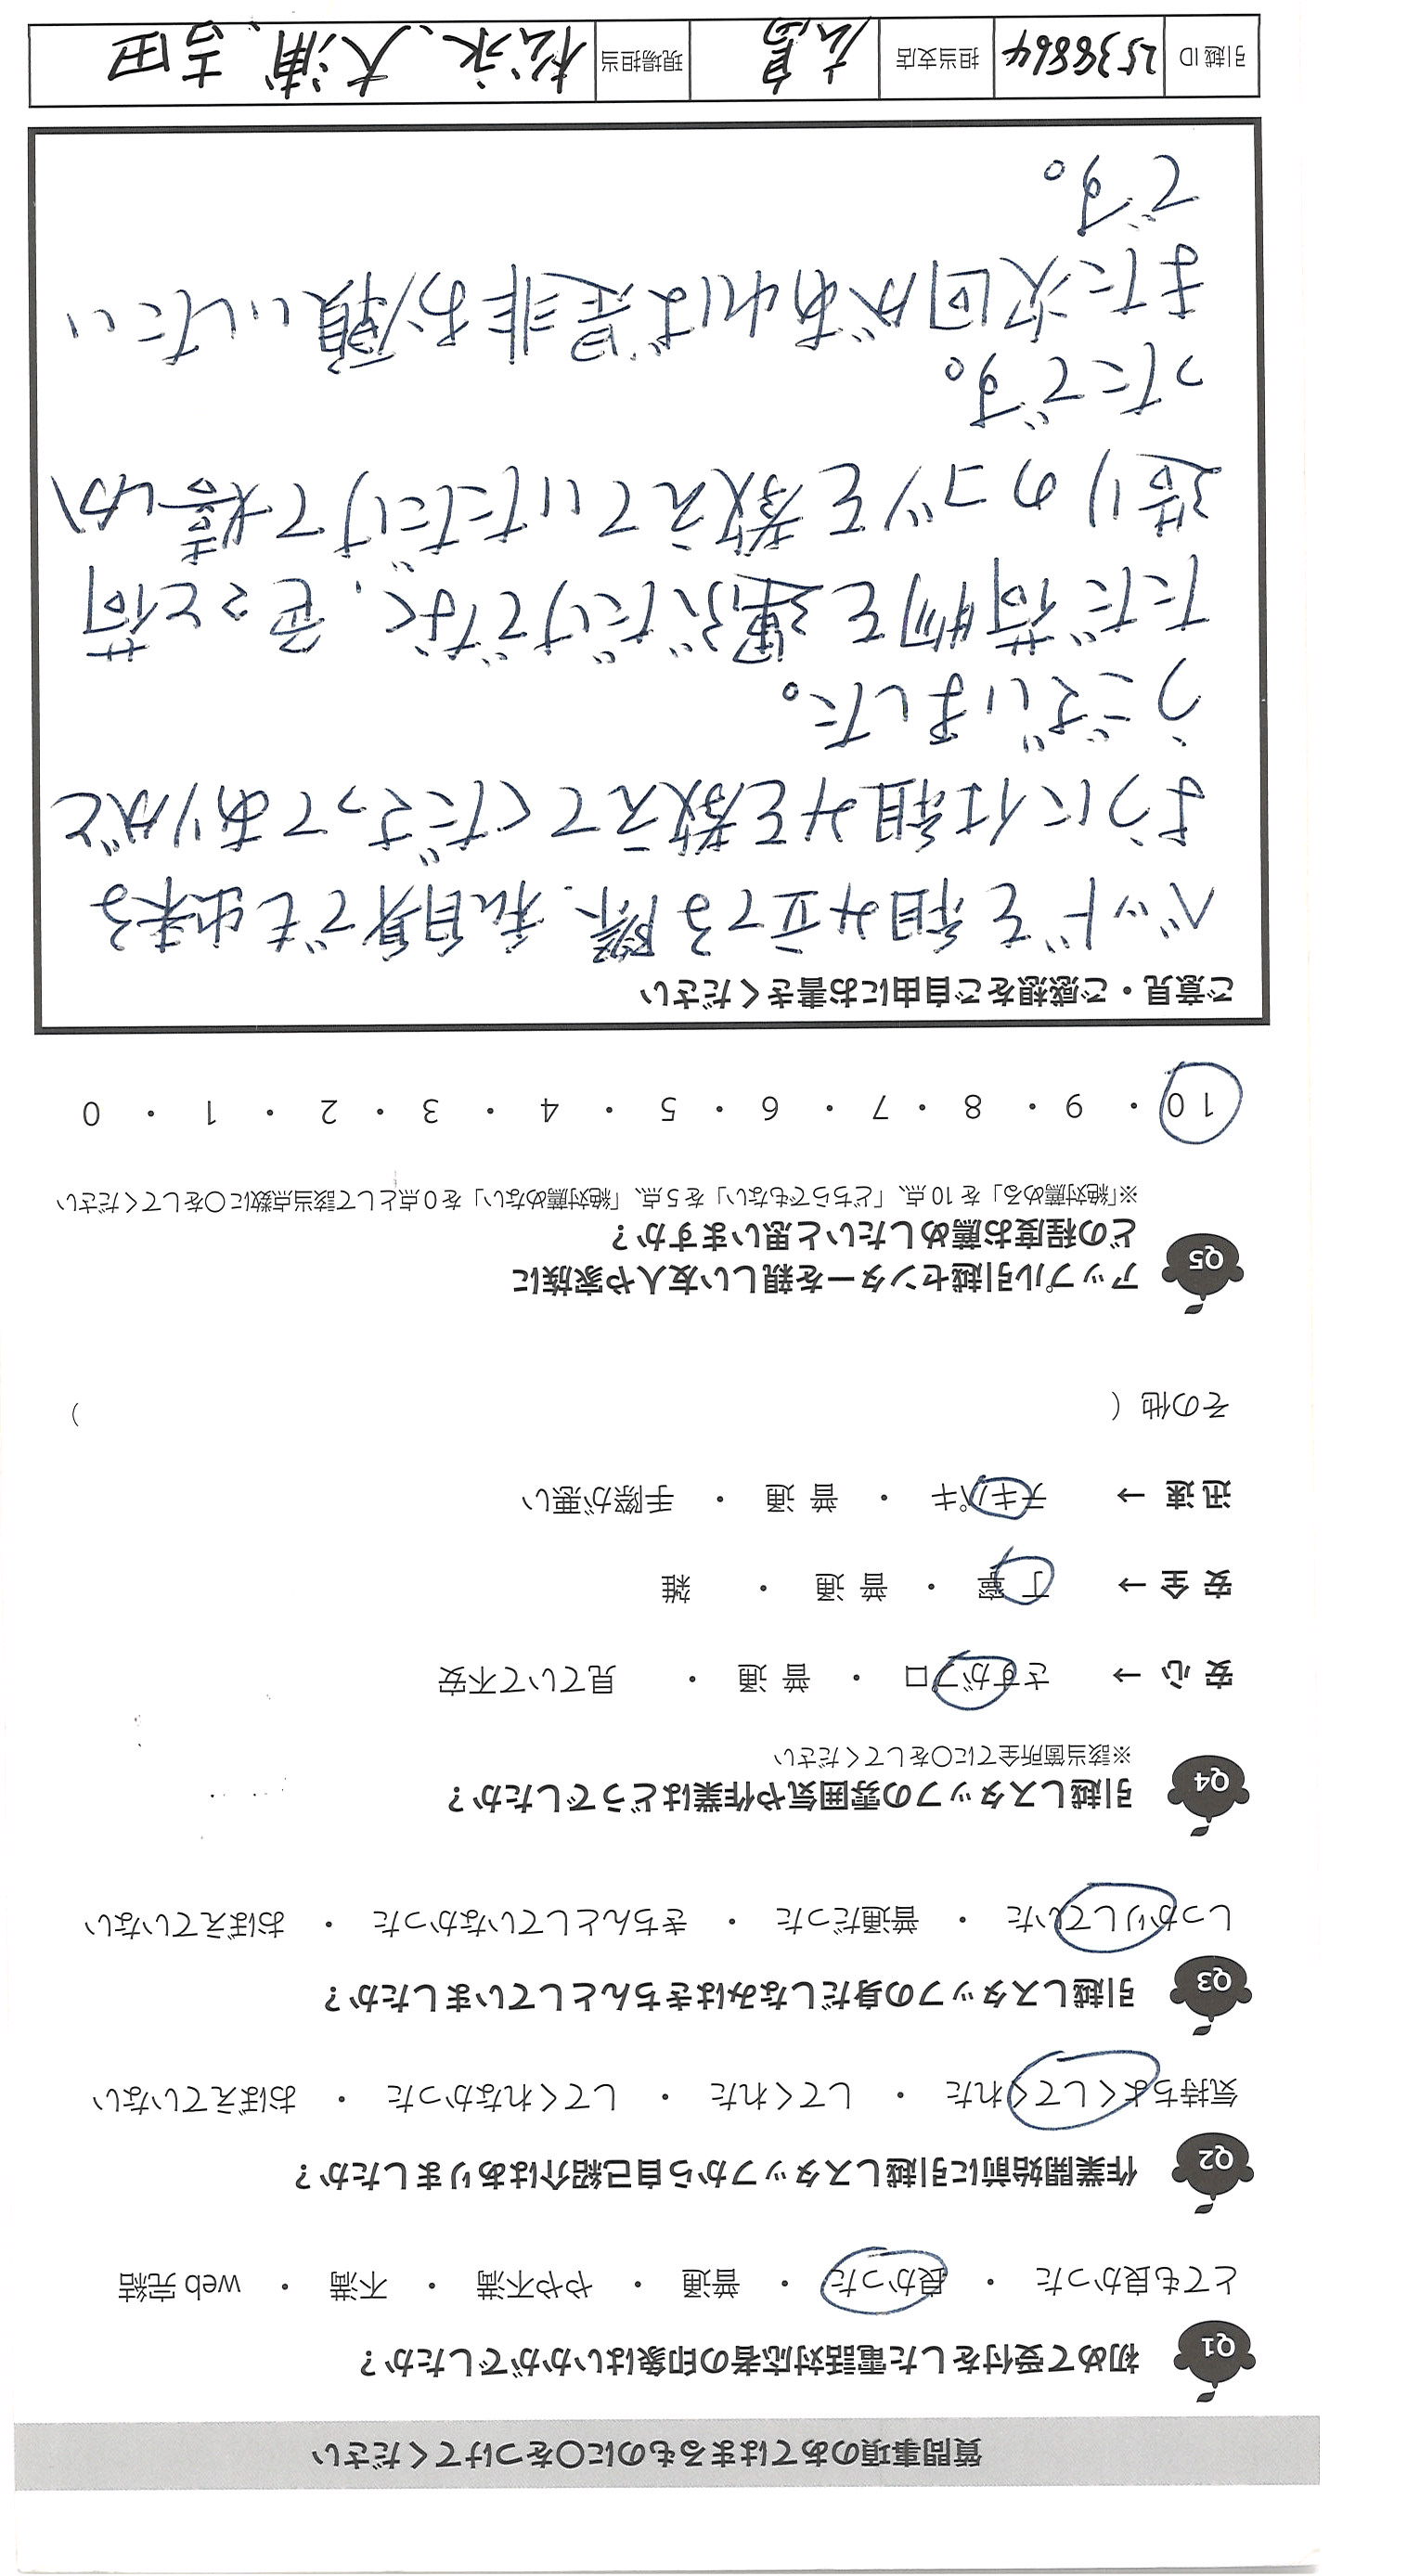 質問事項のあてはまるものに○をつけてください
Q1 初めて受付をした電話対応者の印象はいかがでしたか？
とても良かった ・ 良かった ・ 普通 ・ やや不満 ・ 不満 ・ web 完結
Q2 作業開始前に引越しスタッフから自己紹介はありましたか？
気持ちよくしてくれた ・ してくれた ・ してくれなかった ・ おぼえていない
Q3 引越しスタッフの身だしなみはきちんとしていましたか？
しっかりしていた ・ 普通だった ・ きちんとしていなかった ・ おぼえていない
Q4 引越しスタッフの雰囲気や作業はどうでしたか？
※該当箇所全てに○をしてください
安 心 → さすがプロ ・ 普 通 ・ 見ていて不安
安 全 → 丁 寧 ・ 普 通 ・ 雑
迅 速 → テキパキ ・ 普 通 ・ 手際が悪い
その他（ ）
Q5 アップル引越センターを親しい友人や家族に
どの程度お薦めしたいと思いますか？
※「絶対薦める」を 10 点、「どちらでもない」を 5 点、「絶対薦めない」を 0 点として該当点数に○をしてください
10 ・ 9 ・ 8 ・ 7 ・ 6 ・ 5 ・ 4 ・ 3 ・ 2 ・ 1 ・ 0
ご意見・ご感想をご自由にお書きください
ベッドを組み立てる際、私自身でも出来る
ように仕組みを教えてくださってありがと
うございました。
ただ荷物を運ぶだけでなく、色々と荷
造りのコツを教えていただけて嬉しか
ったです。
また次回があれば是非お願いしたい
です。
引越 ID 2538864 担当支店 広島 現場担当 松永、大浦、吉田